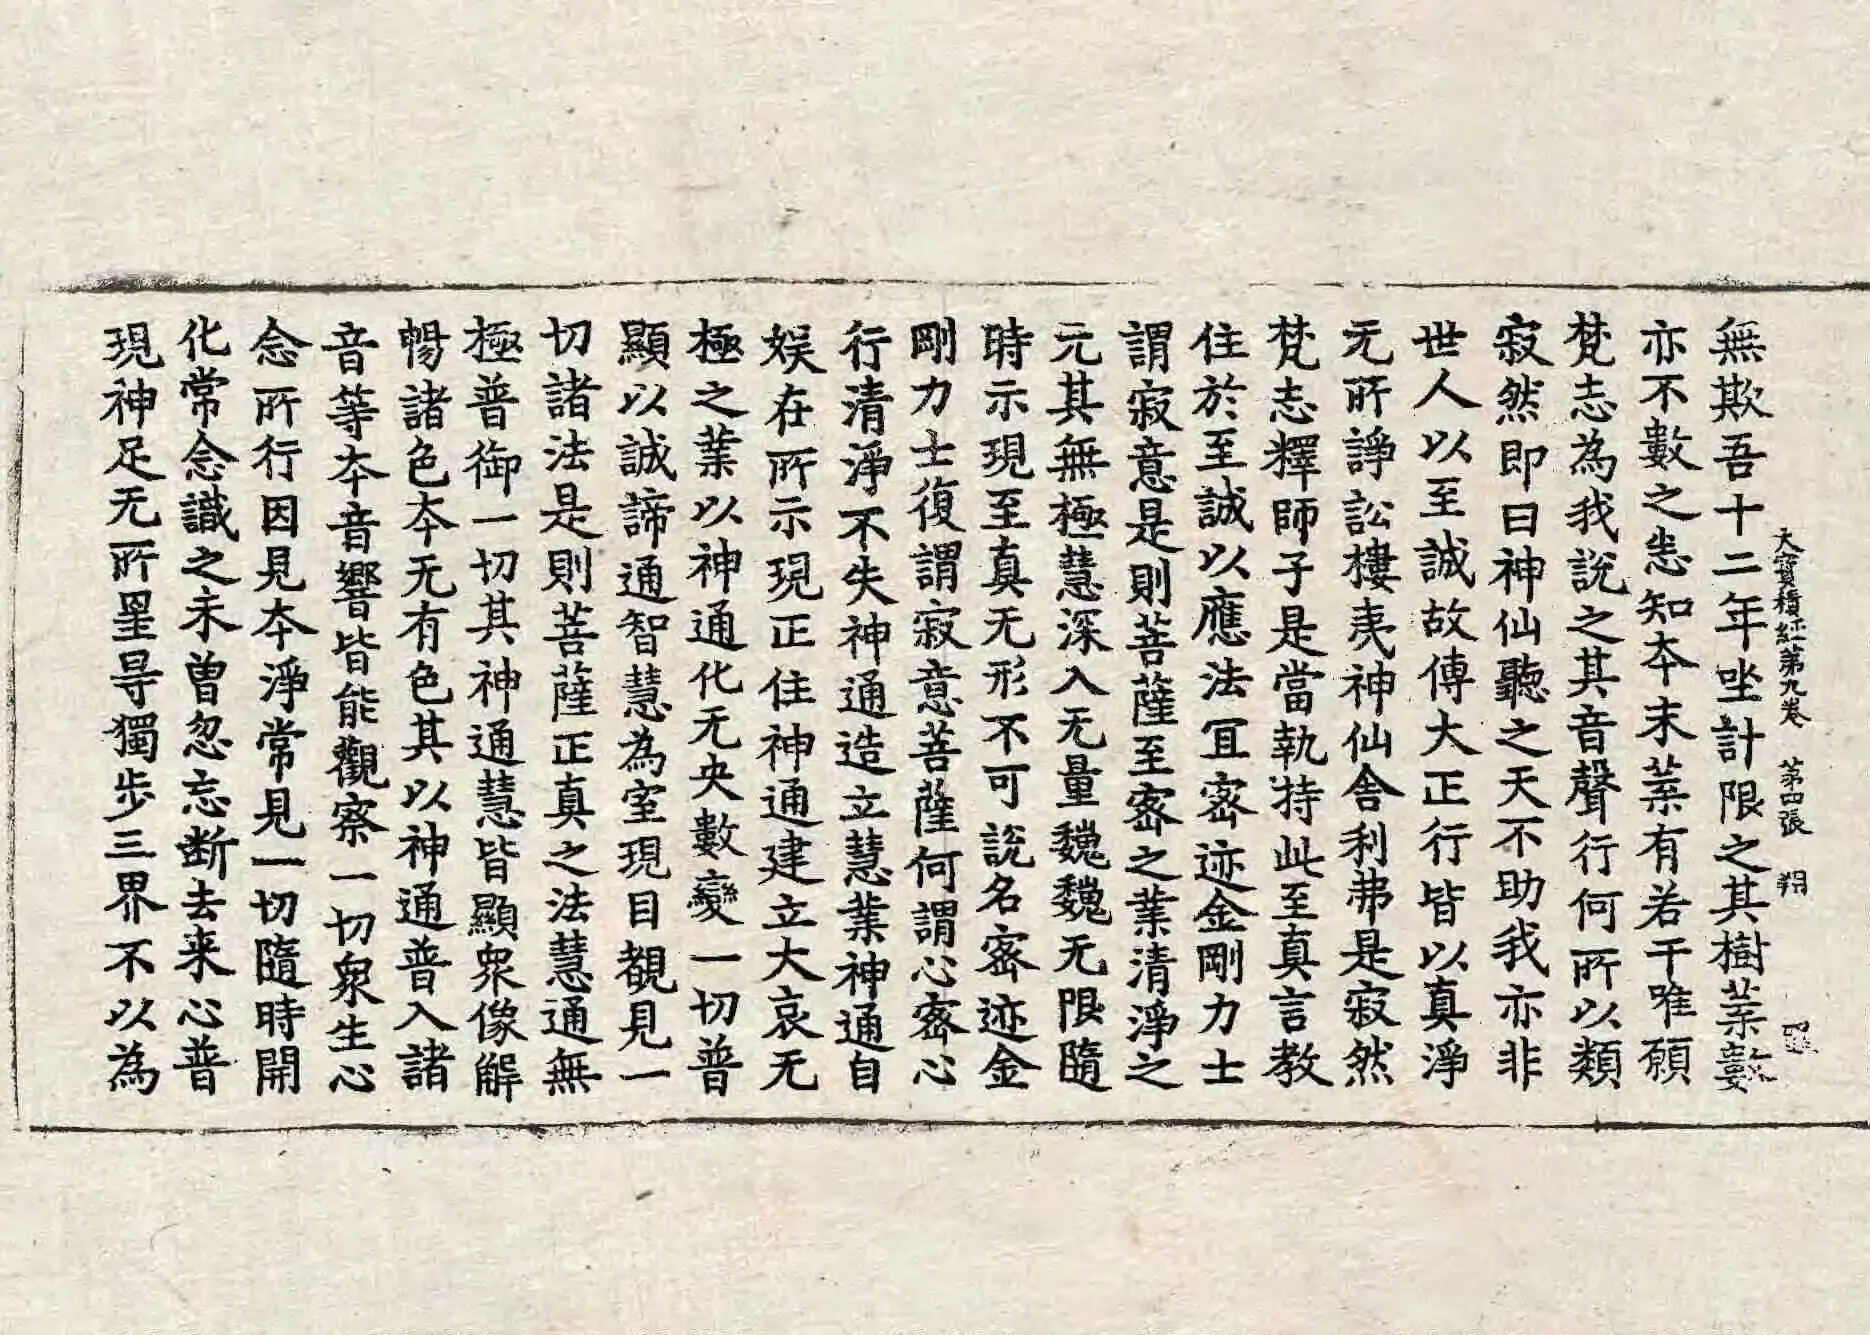 大寳積經第九卷　第四張　翔
無欺吾十二年坐計限之其樹葉數
亦不數之悉知夲末葉有若干唯願
梵志為我説之其音聲行何所以類
寂然即曰神仙聽之天不助我亦非
世人以至誠故傳大正行皆以真淨
无所諍訟樓夷神仙舍利弗是寂然
梵志釋師子是當執持此至真言教
住於至誠以應法冝密迹金剛力士
謂寂意是則菩薩至密之業清淨之
元其無極慧深入无量巍巍无限隨
時示現至真无形不可説名密迹金
剛力士復謂寂意菩薩何謂心密心
行清淨不失神通造立慧業神通自
娱在所示現正住神通建立大哀无
極之業以神通化无央數變一切普
顯以誠諦通智慧為室現目覩見一
切諸法是則菩薩正真之法慧通無
極普御一切其神通慧皆顯衆像解
暢諸色夲无有色其以神通普入諸
音等夲音響皆能觀察一切衆生心
念所行因見夲淨常見一切隨時開
化常念識之未曽忽忘断去来心普
現神足无所罣㝵獨步三界不以為